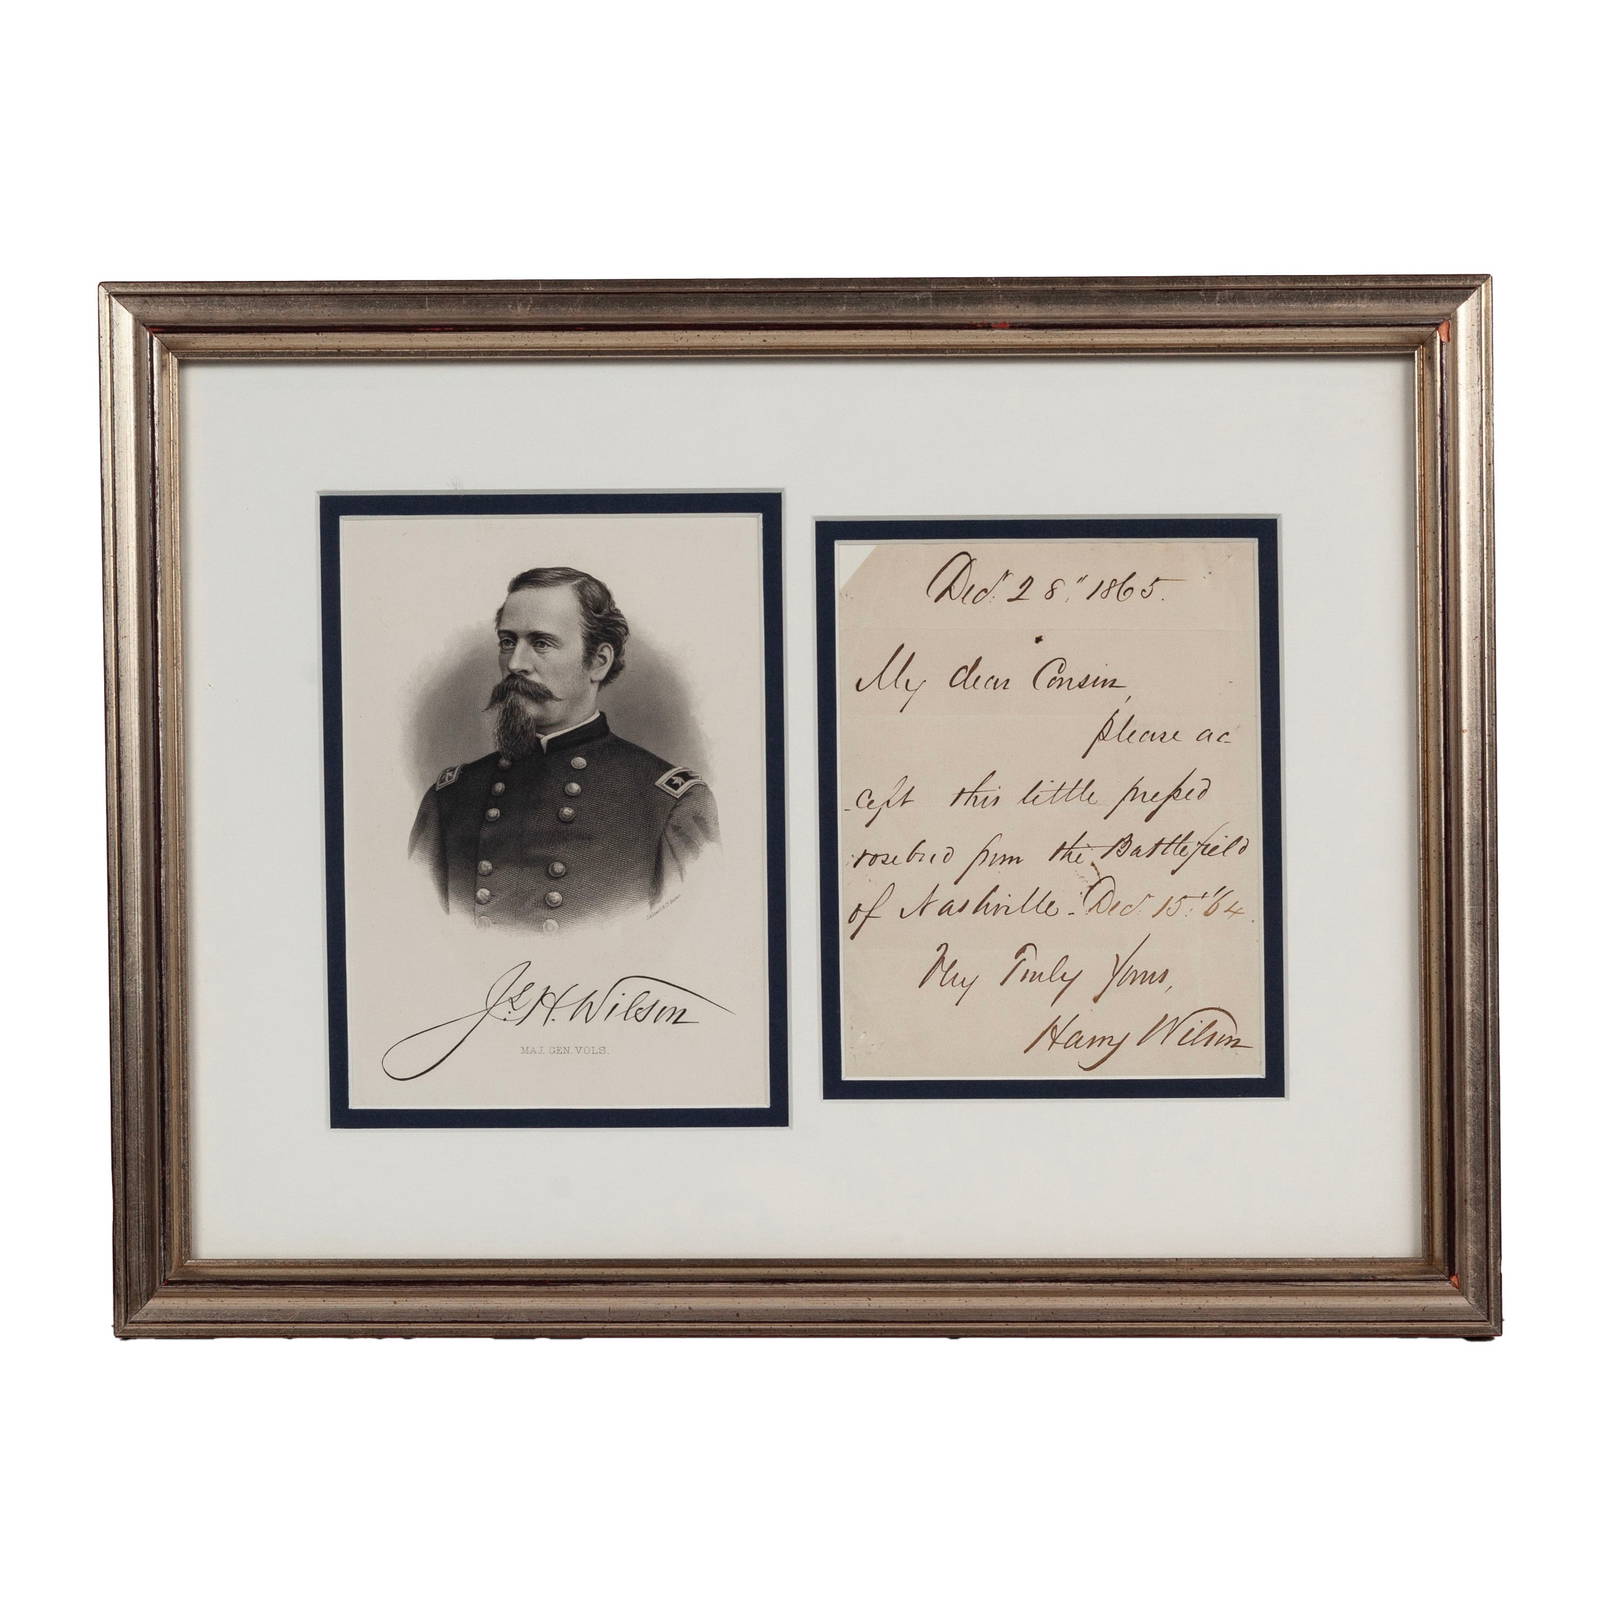 Js. H. Wilson
MAJ. GEN. VOLS.
Decr. 28" 1865.
My dear Cousin,
please ac
-cept this little pressed
rosebud from the Battlefield
of Nashville. Decr. 15" '64.
Very Truly Yours,
Harry Wilson